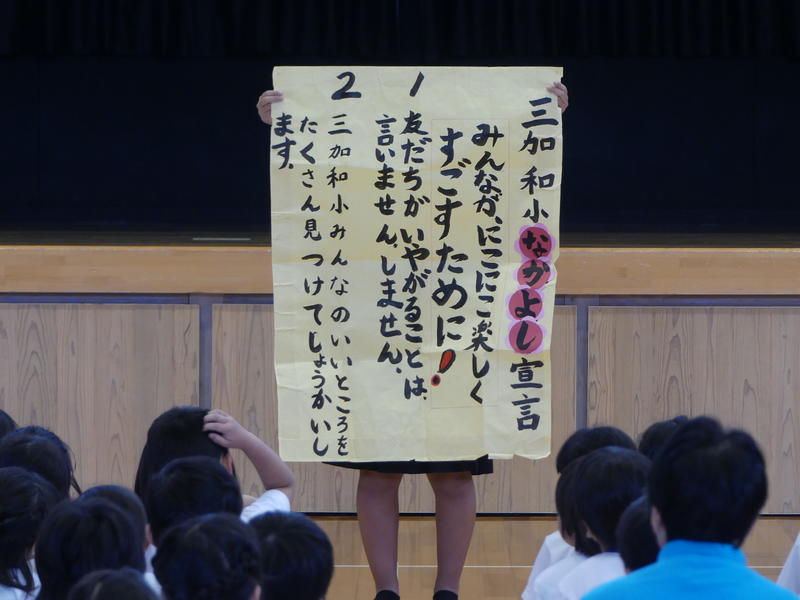 三加和小なかよし宣言
みんなが、にこにこ楽しく
すごすために!
1 友だちがいやがることは、
言いません。しません。
2 三加和小みんなのいいところを
たくさん見つけてしょうかいし
ます。